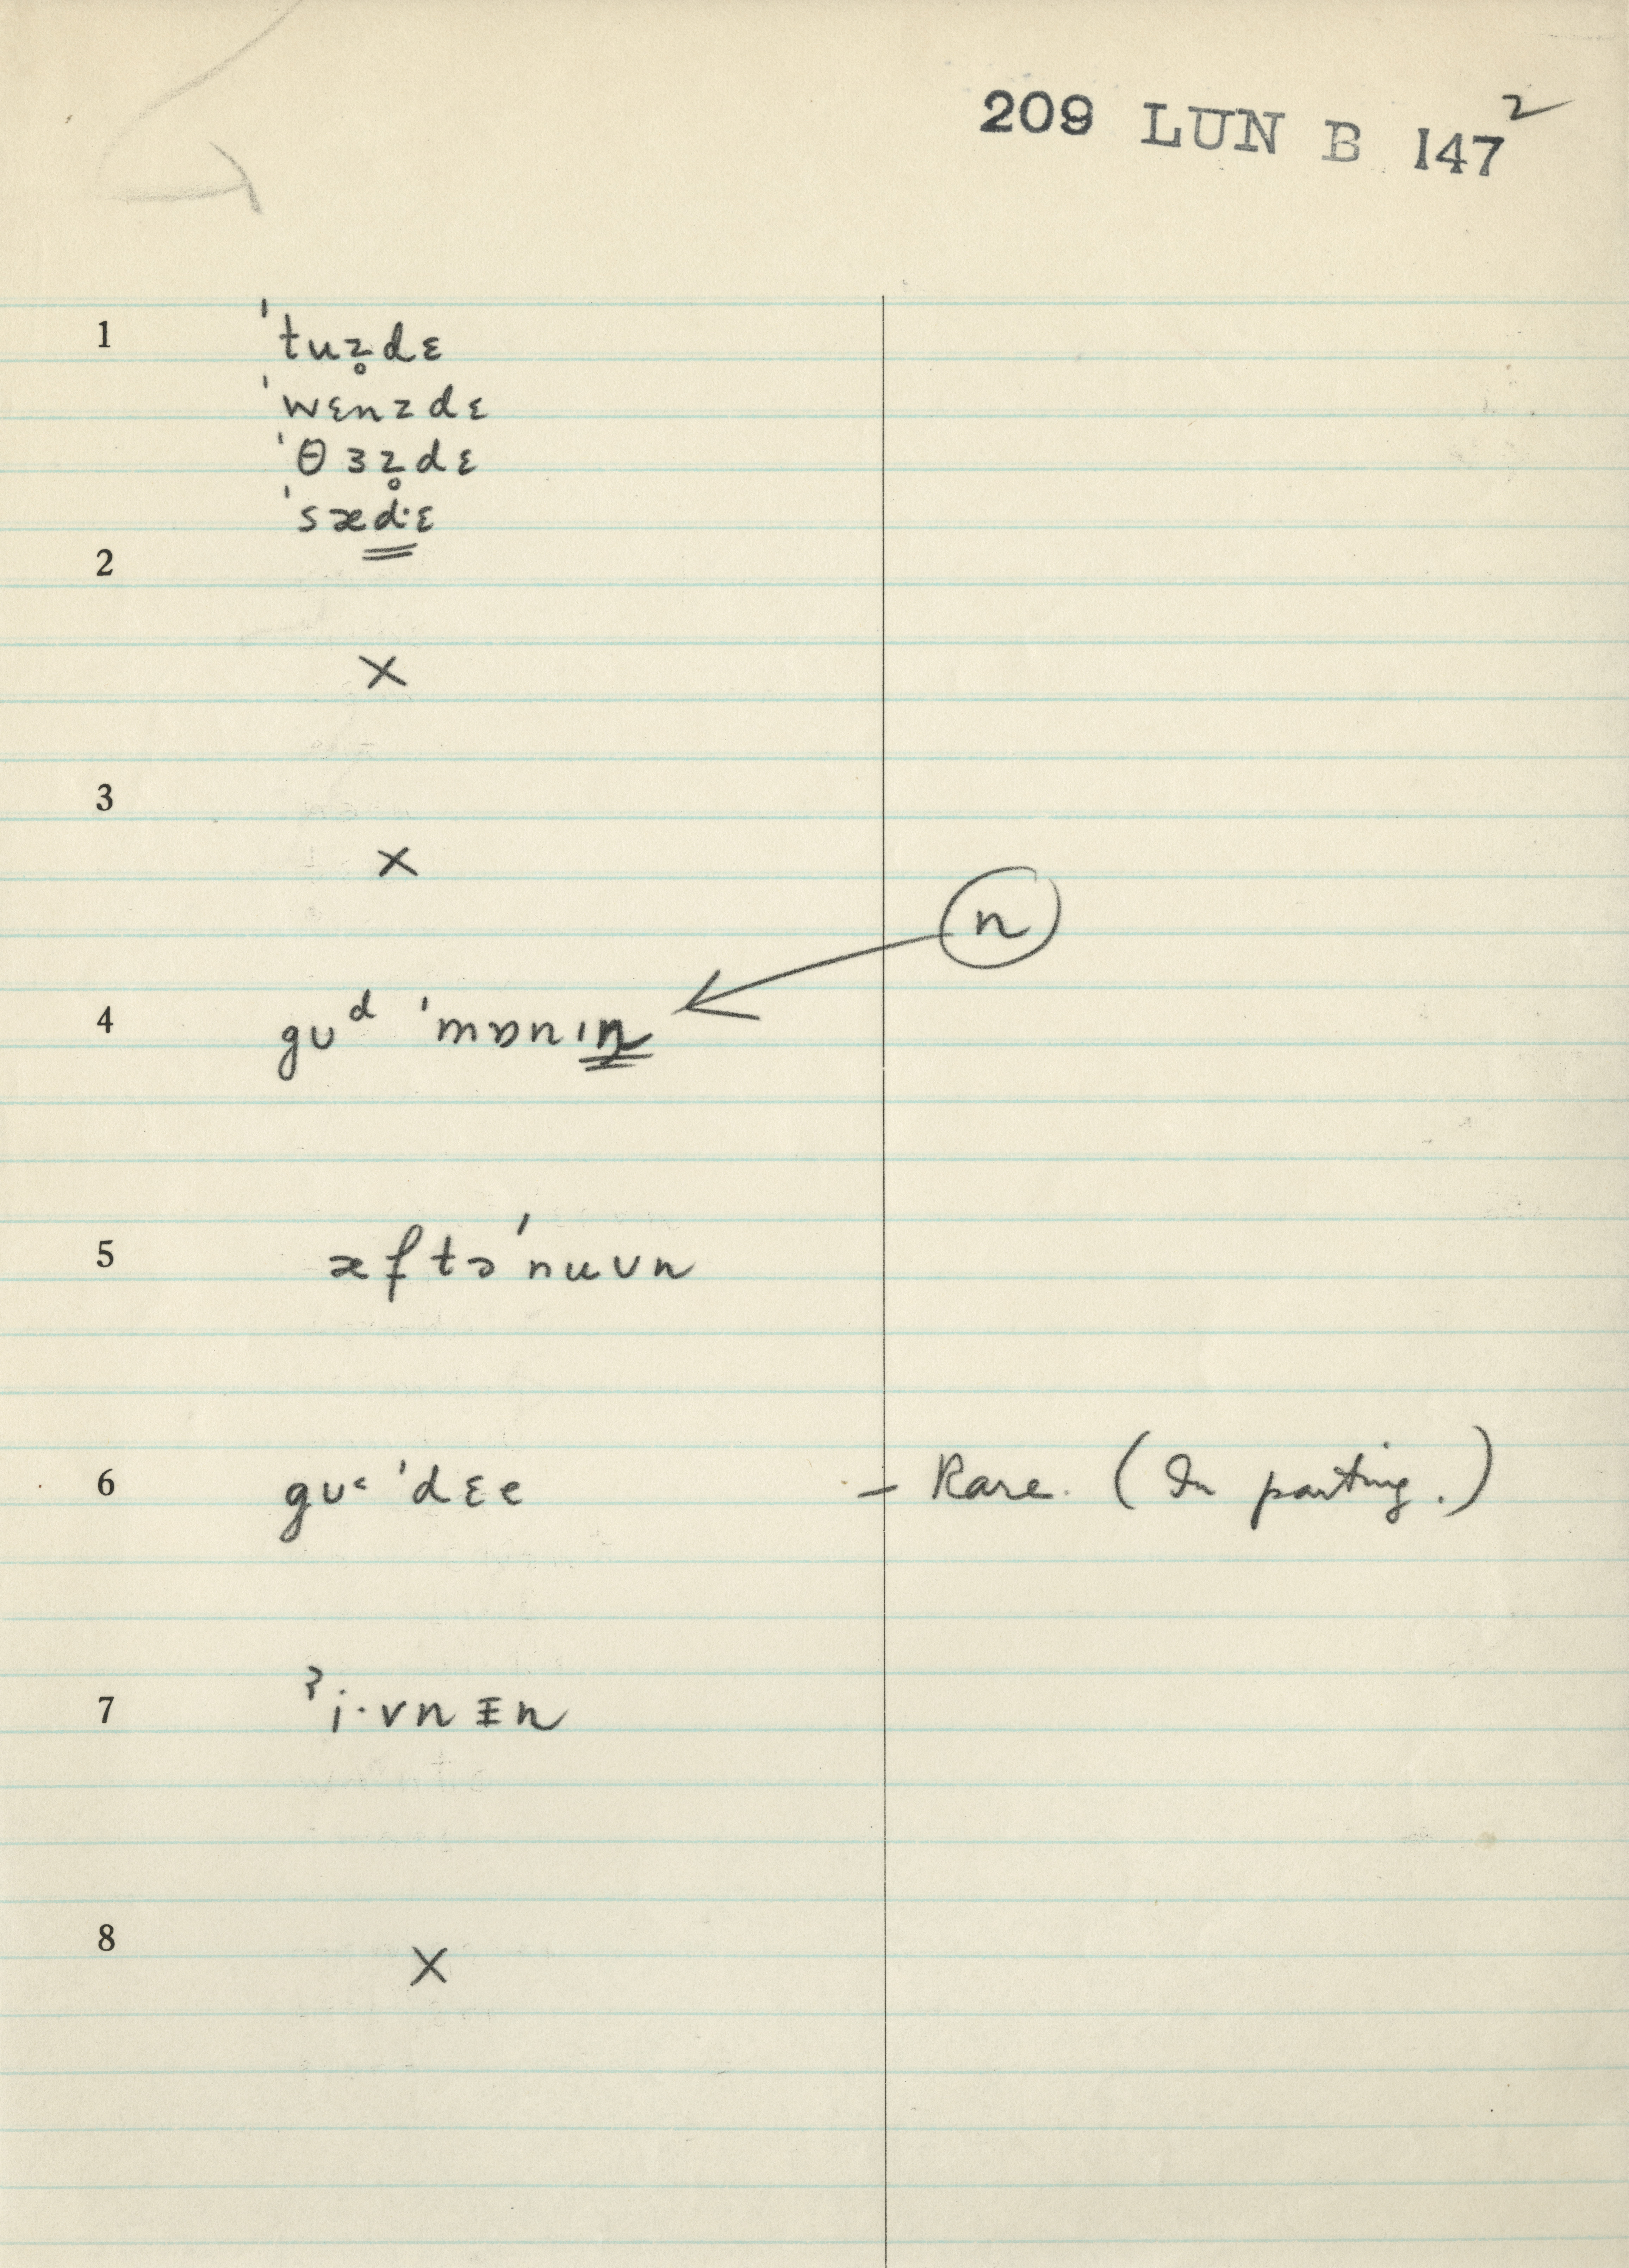 209 LUN B 147²
1 ˈtuz̥dɛ
ˈwɛnzdɛ
ˈθɜz̥dɛ
ˈsædˑɛ
2
×
3
×
n
4 gʊᵈ ˈmɒnɪn
5 æftəˈnuʊn
6 gʊᶜ ˈdɛe – Rare. (In parting.)
7 ˀi·vnɪn
8
×